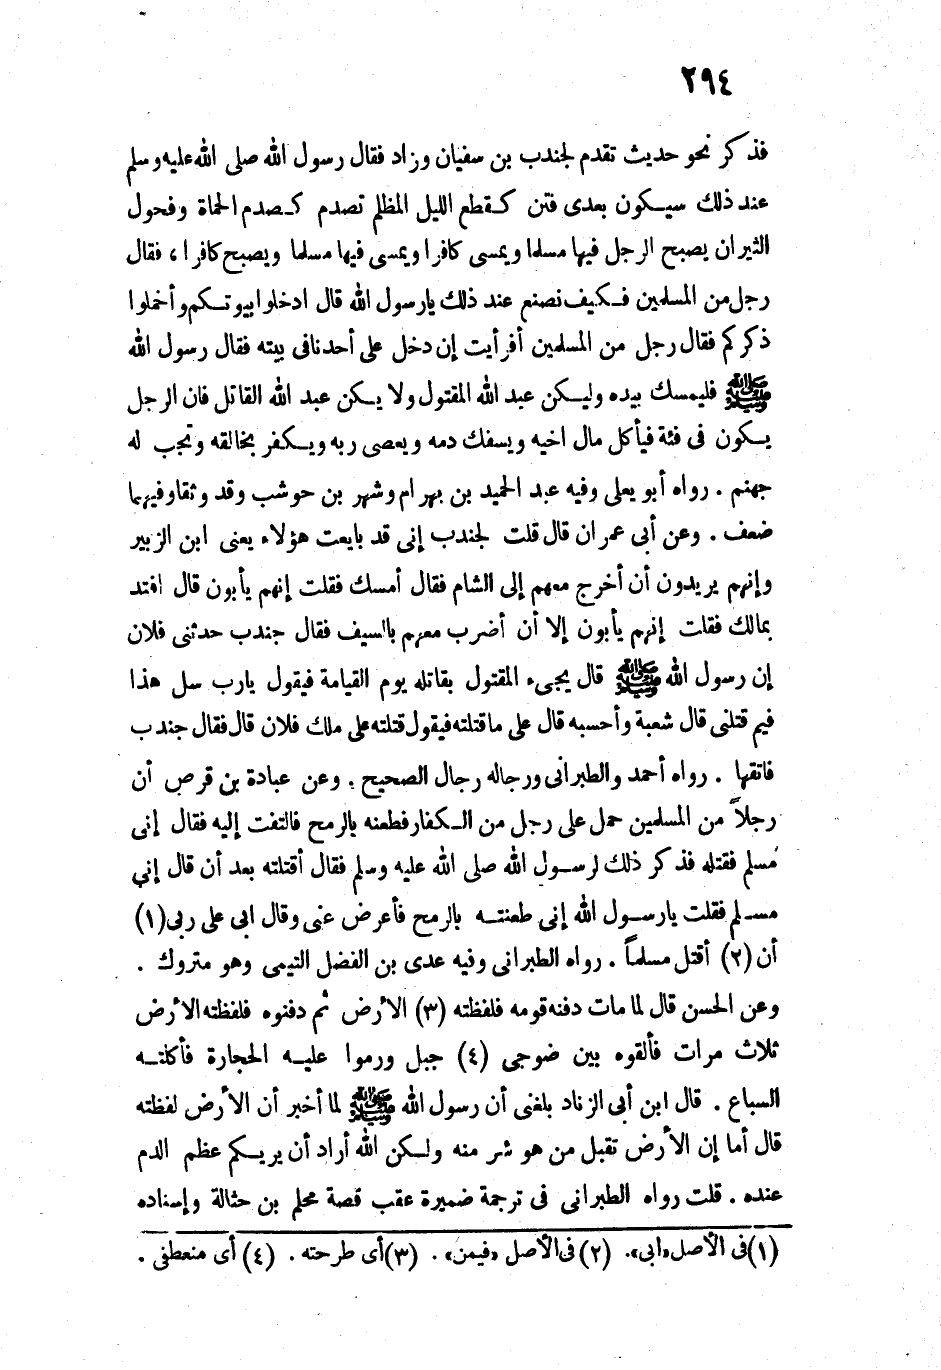 ٢٩٤
فذكر نحو حديث تقدم لجندب بن سفيان وزاد فقال رسول الله صلى الله عليه وسلم
عند ذلك سيكون بعدى فتن كقطع الليل المظلم تصدم كصدم الحماة وفحول
الثيران يصبح الرجل فيها مسلما ويمسى كافرا ويمسى فيها مسلما ويصبح كافرا ، فقال
رجل من المسلمين فكيف نصنع عند ذلك يارسول الله قال ادخلوا بيوتكم وأخملوا
ذكركم فقال رجل من المسلمين أفرأيت إن دخل على أحدنا فى بيته فقال رسول الله
ﷺ فليمسك بيده وليكن عبد الله المقتول ولا يكن عبد الله القاتل فان الرجل
يكون فى فئة فيأكل مال اخيه ويسفك دمه ويعصى ربه ويكفر بخالقه وتجب له
جهنم . رواه أبو يعلى وفيه عبد الحميد بن بهرام وشهر بن حوشب وقد وثقا وفيهما
ضعف . وعن أبى عمران قال قلت لجندب إنى قد بايعت هؤلاء يعنى ابن الزبير
وإنهم يريدون أن أخرج معهم إلى الشام فقال أمسك فقلت إنهم يأبون قال افتد
بمالك فقلت إنهم يأبون إلا أن أضرب معهم بالسيف فقال جندب حدثنى فلان
إن رسول الله ﷺ قال يجىء المقتول بقاتله يوم القيامة فيقول يارب سل هذا
فيم قتلنى قال شعبة وأحسبه قال على ما قتلته فيقول قتلته على ملك فلان قال فقال جندب
فاتقها . رواه أحمد والطبرانى ورجاله رجال الصحيح . وعن عبادة بن قرص أن
رجلاً من المسلمين حمل على رجل من الكفار فطعنه بالرمح فالتفت إليه فقال إنى
مسلم فقتله فذكر ذلك لرسول الله صلى الله عليه وسلم فقال أقتلته بعد أن قال إنى
مسلم فقلت يارسول الله إنى طعنته بالرمح فأعرض عنى وقال ابى على ربى (١)
أن (٢) أقتل مسلماً . رواه الطبرانى وفيه عدى بن الفضل التيمى وهو متروك .
وعن الحسن قال لما مات دفنه قومه فلفظته (٣) الأرض ثم دفنوه فلفظته الأرض
ثلاث مرات فألقوه بين ضوجى (٤) جبل ورموا عليه الحجارة فأكلته
السباع . قال ابن أبى الزناد بلغنى أن رسول الله ﷺ لما أخبر أن الأرض لفظته
قال أما إن الأرض تقبل من هو شر منه ولكن الله أراد أن يريكم عظم الدم
عنده . قلت رواه الطبرانى فى ترجمة ضميرة عقب قصة محلم بن جثالة وإسناده
(١) فى الأصل «ابى». (٢) فى الأصل «فيمن» . (٣) أى طرحته . (٤) أى منعطفى .